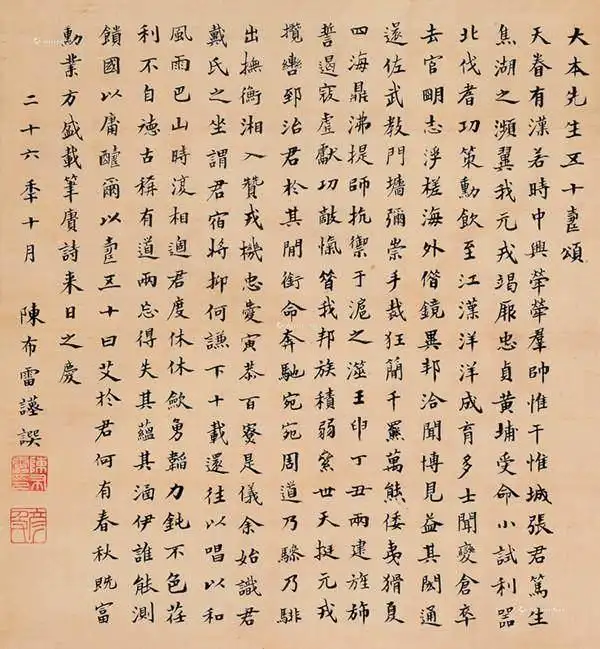 大本先生五十壽頌
天眷有漢若時中興犖犖羣帥惟干惟城張君篤生
焦湖之瀕翼我元戎竭厥忠貞黃埔受命小試利器
北伐耆功策勳飲至江漢洋洋成育多士聞變倉卒
去官朙志浮槎海外借鏡異邦洽聞博見益其閎通
遂佐武教門墻彌崇手裁狂簡千羆萬熊倭夷猾夏
四海鼎沸提師抗禦于滬之澨壬申丁丑兩建旌旆
誓遏寇虐獻功敵愾昝我邦族積弱絫世天挺元戎
攬轡郅治君於其間銜命奔馳宛宛周道乃驂乃騑
出撫衡湘入贊戎機忠愛寅恭百寮是儀余始識君
戴氏之坐謂君宿將抑何謙下十載還往以唱以和
風雨巴山時復相過君度休休歛勇韜力鈍不色荏
利不自德古稱有道兩忘得失其蘊其涵伊誰能測
饋國以庸醻爾以壽五十曰艾於君何有春秋旣富
勳業方盛載筆賡詩來日之慶
二十六季十月 陳布雷謹譔
陳布雷印